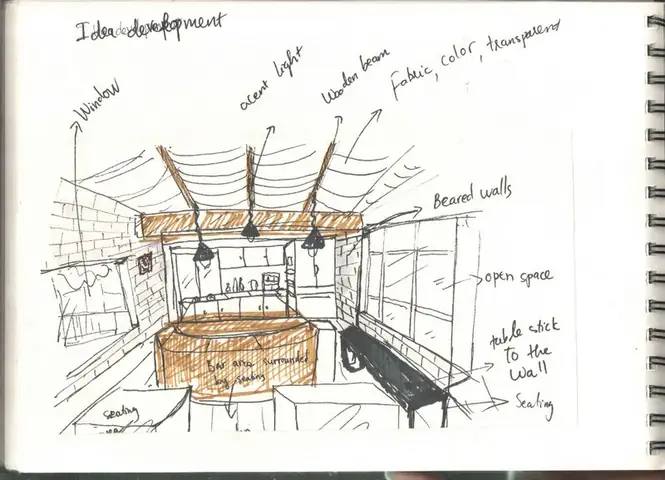 Idea development
Window
acent light
Wooden beam
Fabric, color, transparend
Beared walls
open space
table stick
to the
wall
Seating
bar area surrounded
by seating
seating